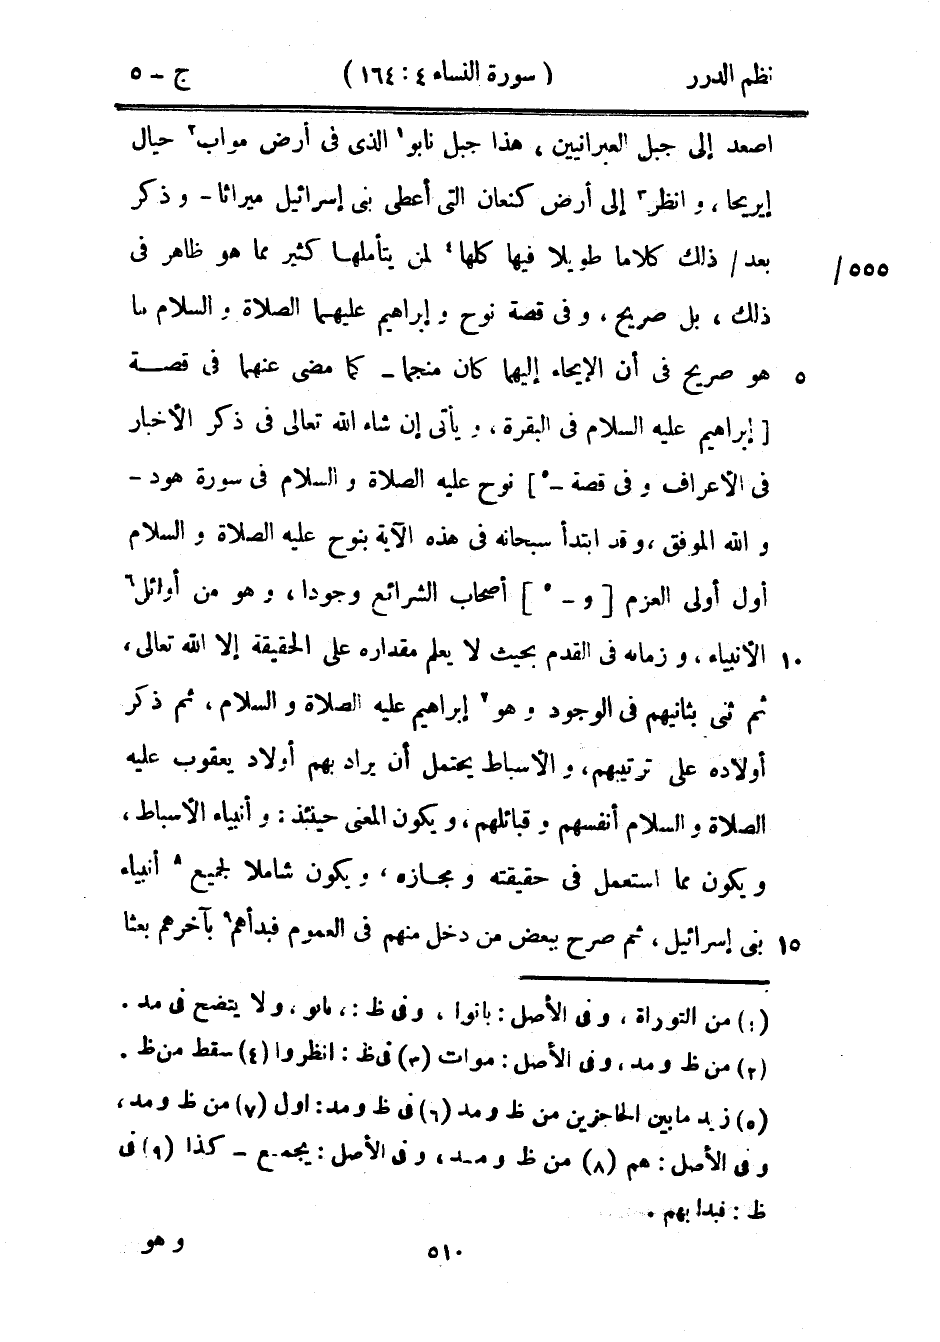 نظم الدرر ( سورة النساء ٤ : ١٦٤ ) ج - ٥
اصعد إلى جبل العبرانيين ، هذا جبل نابو١ الذى فى أرض مواب٢ حيال
إيريحا ، و انظر٣ إلى أرض كنعان التى أعطى بنى إسرائيل ميراثا - و ذكر
بعد / ذلك كلاما طويلا فيها كلها٤ لمن يتأملها كثير مما هو ظاهر فى /٥٥٥
ذلك ، بل صريح ، و فى قصة نوح و إبراهيم عليهما الصلاة و السلام ما
هو صريح فى أن الإيحاء إليهما كان منجما - كما مضى عنهما فى قصة ٥
[ إبراهيم عليه السلام فى البقرة ، و يأتى إن شاء الله تعالى فى ذكر الأخبار
فى الأعراف و فى قصة -٥ ] نوح عليه الصلاة و السلام فى سورة هود -
و الله الموفق ، و قد ابتدأ سبحانه فى هذه الآية بنوح عليه الصلاة و السلام
أول أولى العزم [ و -٥ ] أصحاب الشرائع وجودا ، و هو من أوائل٦
الأنبياء ، و زمانه فى القدم بحيث لا يعلم مقداره على الحقيقة إلا الله تعالى ، ١٠
ثم ثنى بثانيهم فى الوجود و هو٧ إبراهيم عليه الصلاة و السلام ، ثم ذكر
أولاده على ترتيبهم ، و الأسباط يحتمل أن يراد بهم أولاد يعقوب عليه
الصلاة و السلام أنفسهم و قبائلهم ، و يكون المعنى حينئذ : و أنبياء الأسباط ،
و يكون مما استعمل فى حقيقته و مجازه ، و يكون شاملا لجميع٨ أنبياء
بنى إسرائيل ، ثم صرح ببعض من دخل منهم فى العموم فبدأهم٩ بآخرهم بعثا ١٥
(١) من التوراة ، و فى الأصل : بانوا ، و فى ظ : ، مابو ، و لا يتضح فى مد .
(٢) من ظ و مد ، و فى الأصل : موات (٣) فى ظ : انظروا (٤) سقط من ظ .
(٥) زيد ما بين الحاجزين من ظ و مد (٦) فى ظ و مد : اول (٧) من ظ و مد ،
و فى الأصل : هم (٨) من ظ و مد ، و فى الأصل : يجمع - كذا (٩) فى
ظ : فبدا بهم .
٥١٠ و هو